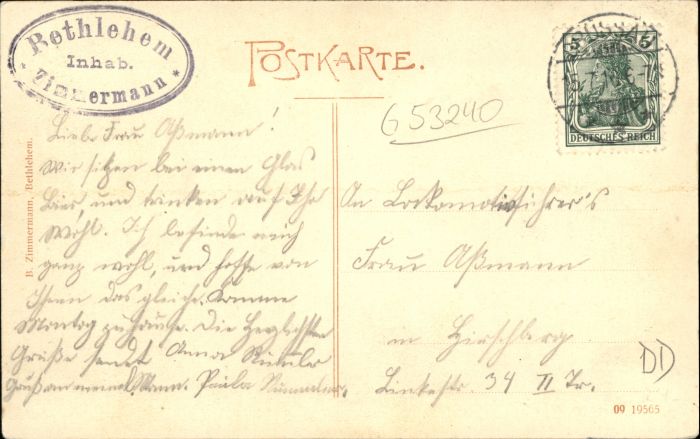 Bethlehem
Inhab.
Zimmermann
POSTKARTE.
5 5
DEUTSCHES REICH
653240
B. Zimmermann, Bethlehem.
Liebe Frau Aßmann!
Wir sitzen bei einen Glas
Bier und trinken auf Ihr
Wohl. Ich befinde mich
ganz wohl, und hoffe von
Ihnen das gleiche. Komme
Montag zu hause. Die Herzlichsten
Grüße sendet Anna
Gruß an meinen Mann. Paula
An Lockomotivführer's
Frau Aßmann
in Hirschberg
Linkestr. 34 II Tr.
DD
09 19565